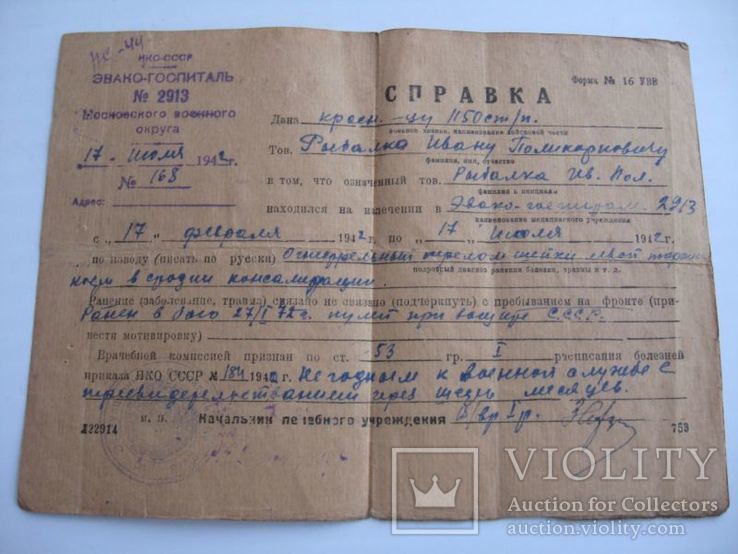 НКО-СССР
ЭВАКО-ГОСПИТАЛЬ
№ 2913
Московского военного
округа
17 - июля 1942 г.
№ 168
Адрес:
Форма № 16 УВВ
СПРАВКА
Дана красн.-цу 1150 ст/п.
военное звание, наименование войсковой части
Тов. Рыбалка Ивану Поликарповичу
фамилия, имя, отчество
в том, что означенный тов. Рыбалка Ив. Пол.
фамилия и инициалы
находился на излечении в Эвако-госпитале 2913
наименование медицинского учреждения
с „17„ февраля 1942 г. по „17„ июля 1942 г.
по поводу (писать по русски) Огнестрельный перелом шейки левой
подробный диагноз ранения болезни, травмы и т. д.
в стадии консолидации.
Ранение (заболевание, травма) связано не связано (подчеркнуть) с пребыванием на фронте (при-
Ранен в бою 27/I 42 г. пулей при защите С.С.С.Р.
вести мотивировку)
Врачебной комиссией признан по ст. 53 гр. I расписания болезней
приказа НКО СССР № 184 1942 г. Негодным к военной службе с
переосвидетельствованием через шесть месяцев.
м. п.
Начальник лечебного учреждения
Л22914
753
VIOLITY
Auction for Collectors
auction.violity.com